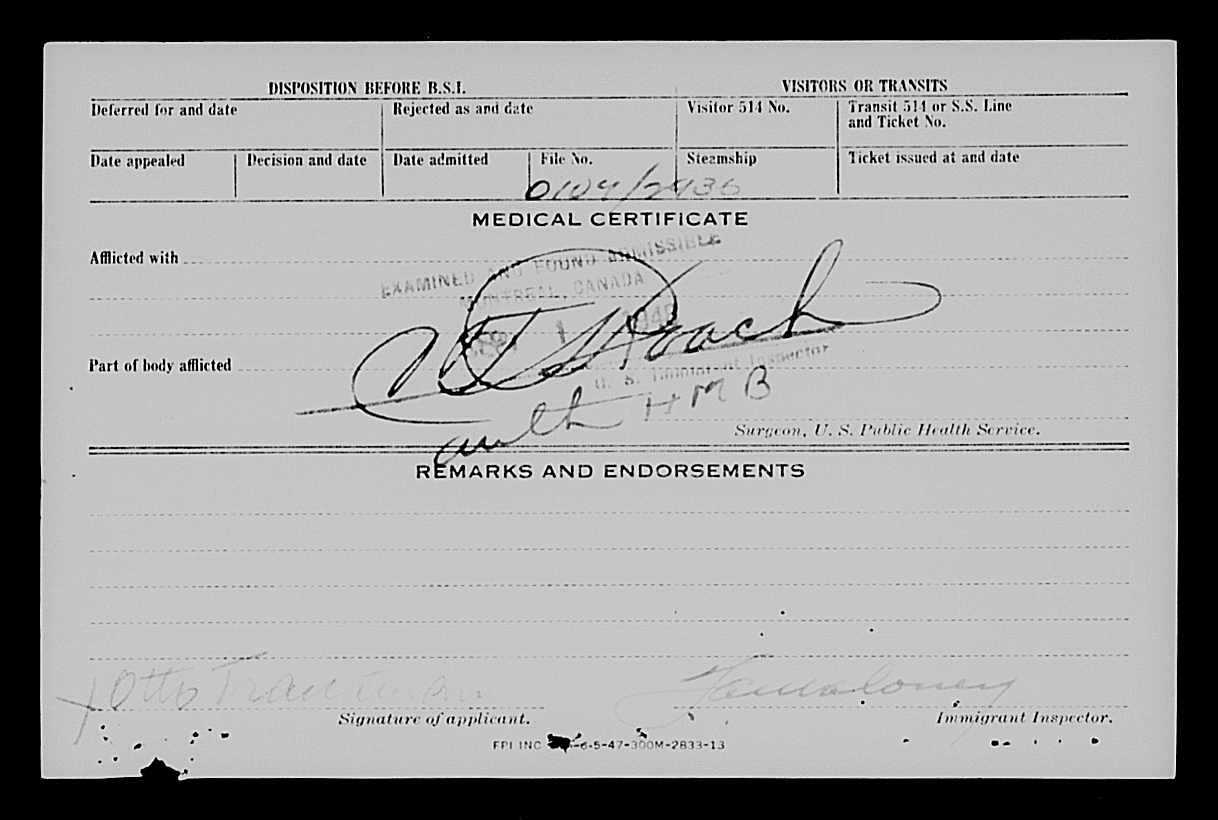 DISPOSITION BEFORE B.S.I. VISITORS OR TRANSITS
Deferred for and date Rejected as and date Visitor 514 No. Transit 514 or S.S. Line and Ticket No.
Date appealed Decision and date Date admitted File No. Steamship Ticket issued at and date
MEDICAL CERTIFICATE
Afflicted with
EXAMINED AND FOUND ADMISSIBLE
MONTREAL, CANADA
Roach
Part of body afflicted
U. S. Immigrant Inspector
auth HMB
Surgeon, U. S. Public Health Service.
REMARKS AND ENDORSEMENTS
Otto Maloney
Signature of applicant. Immigrant Inspector.
FPI INC 6-5-47-300M-2833-13